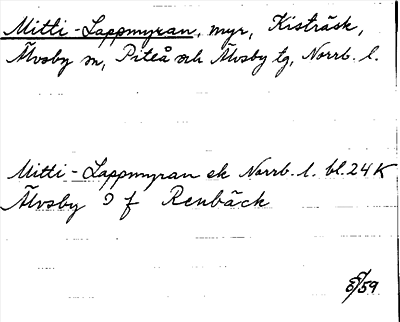 Mitti-Lappmyran, myr, Kisträsk,
Älvsby sn, Piteå och Älvsby tg, Norrb. l.
Mitti-Lappmyran ek Norrb. l. bl. 24 K
Älvsby 9 f Renbäck
59